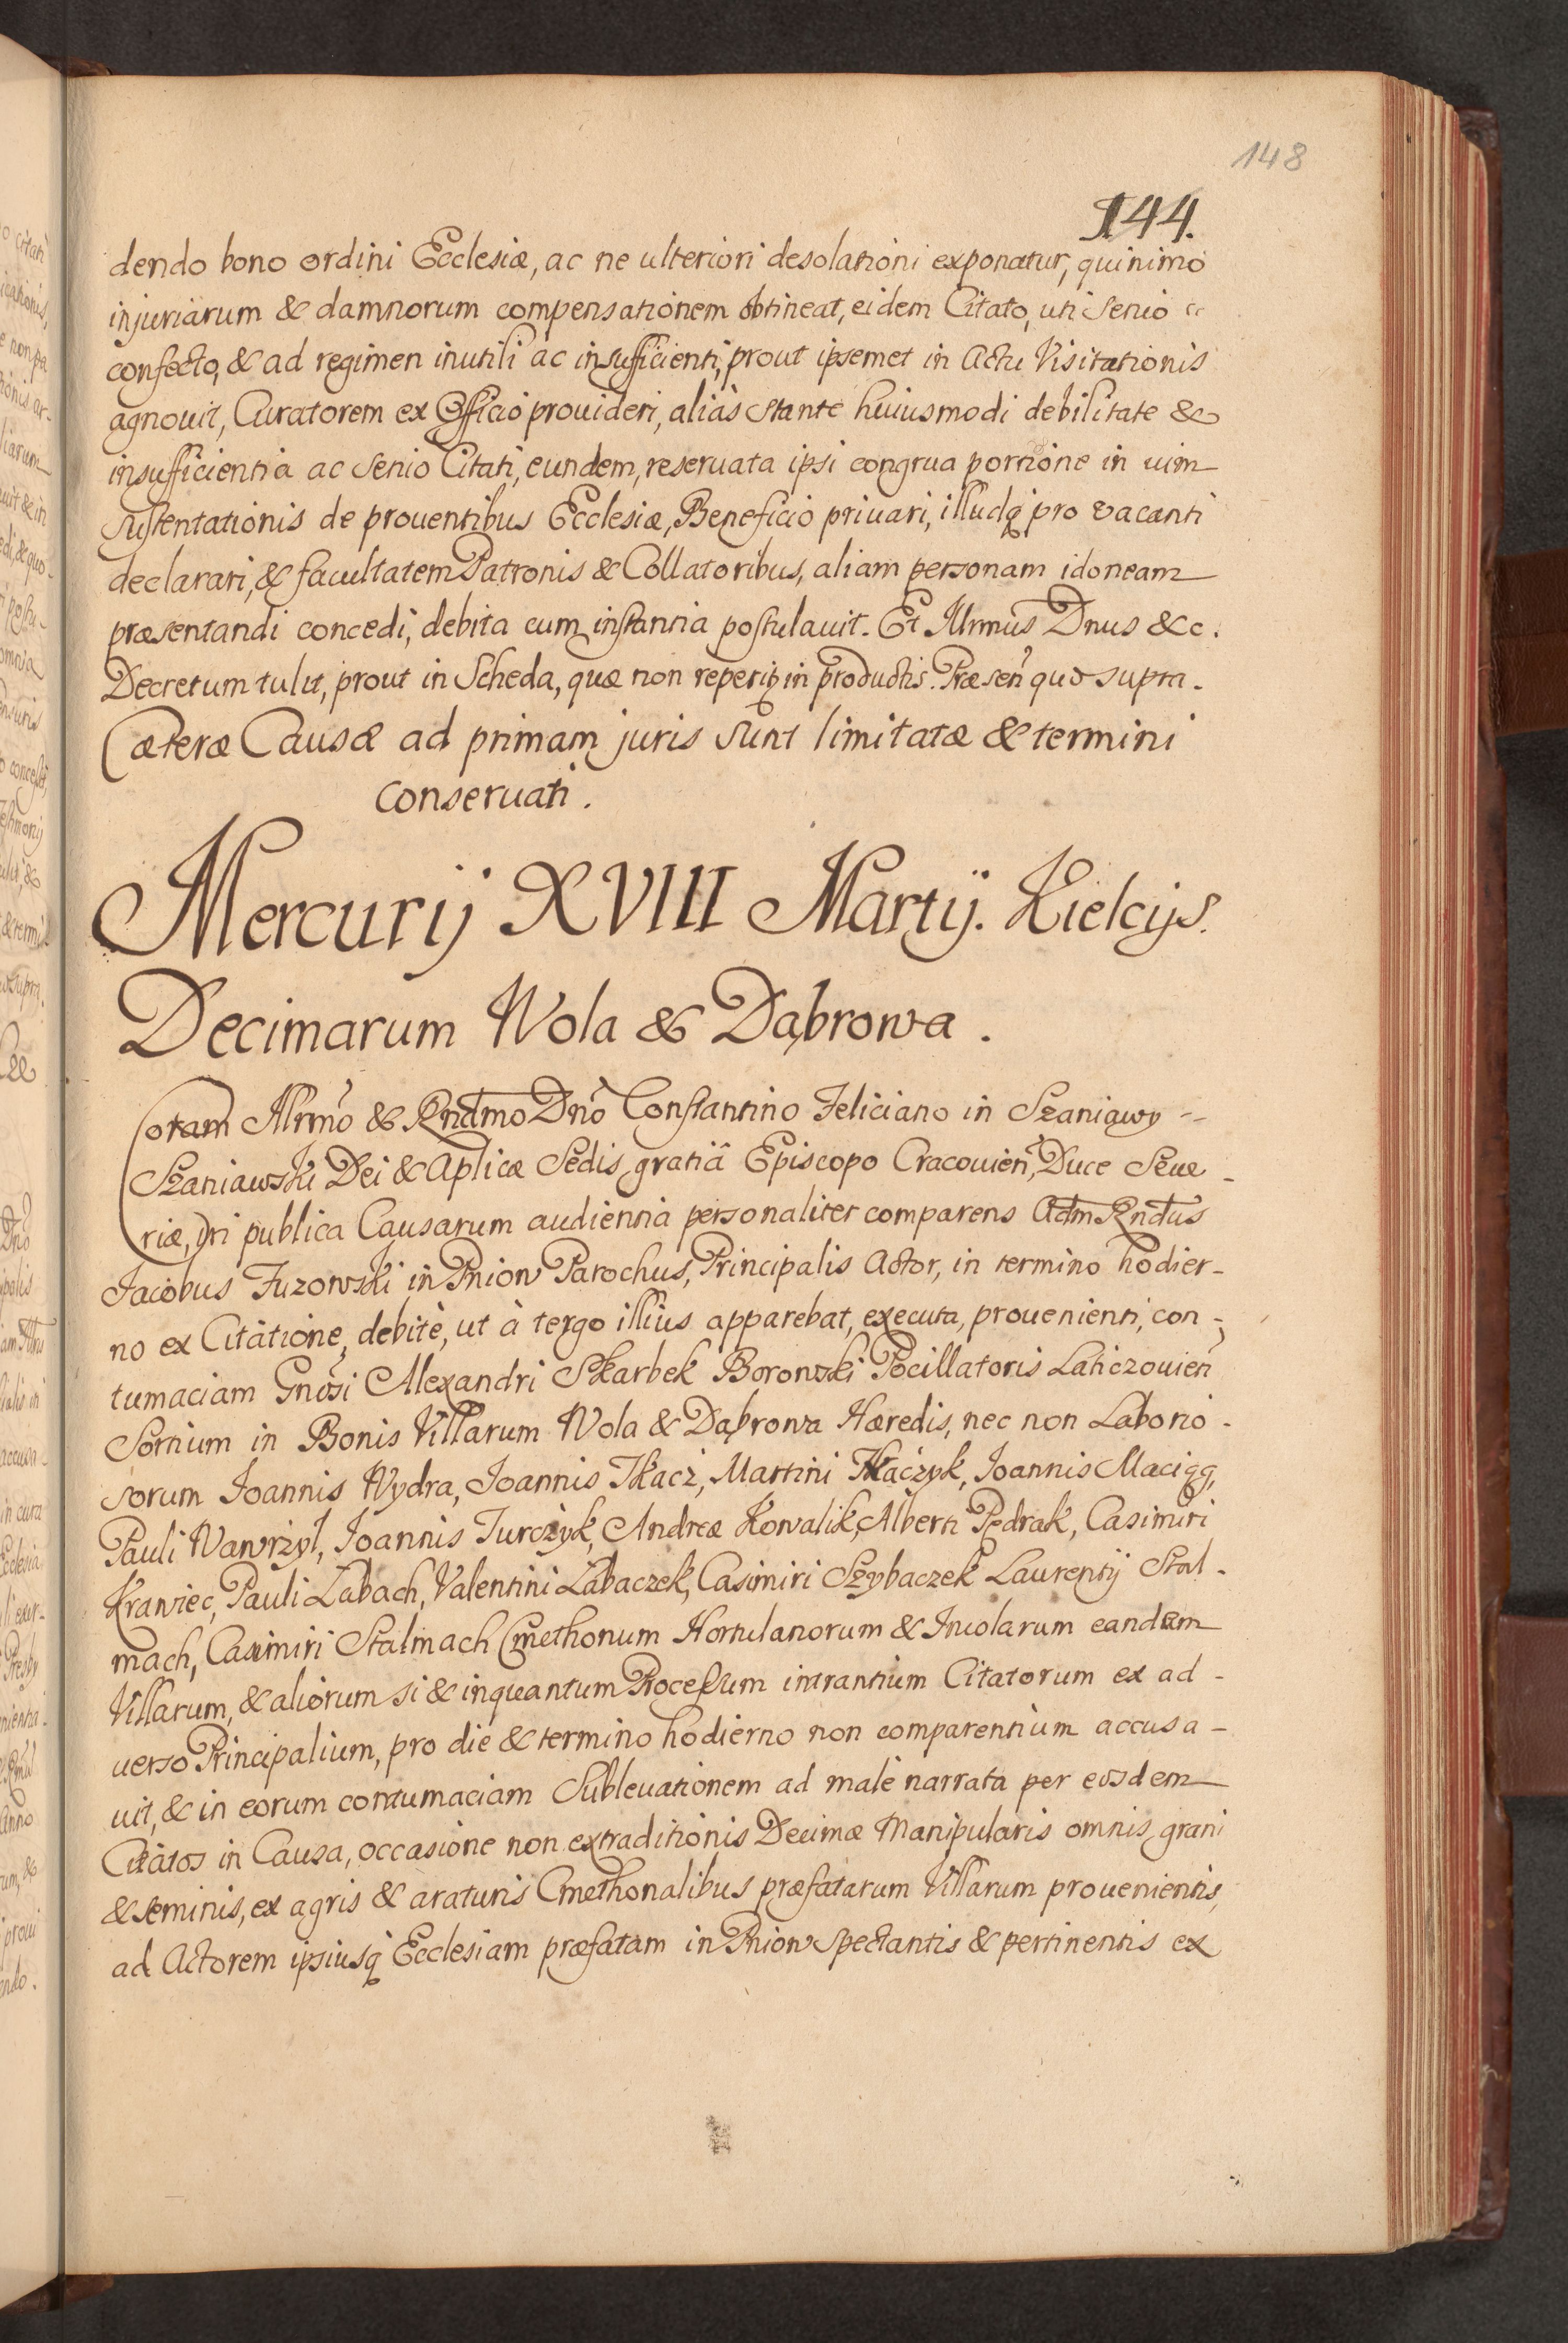 148
144.
dendo bono ordini Ecclesiæ, ac ne ulteriori desolationi exponatur, quinimo
injuriarum & damnorum compensationem obtineat, eidem Citato, uti senio
confecto, & ad regimen inutili ac insufficienti, prout ipsemet in Actu Visitationis
agnouit, Curatorem ex Officio prouideri, aliàs stante huiusmodi debilitate &
insufficientia ac senio Citati, eundem, reseruata ipsi congrua portione in uim
sustentationis de prouentibus Ecclesiæ, Beneficio priuari, illudq pro vacanti
declarari, & facultatem Patronis & Collatoribus, aliam personam idoneam
præsentandi concedi, debita cum instantia postulauit. Et Illrmus Dnus &c.
Decretum tulit, prout in Scheda, quæ non reperitr in productis. Præsen quo supra.
Cæteræ Causæ ad primam juris sunt limitatæ & termini
conseruati.
Mercurij XVIII Martij. Kielcijs.
Decimarum Wola & Dąbrowa.
Coram Illrmo & Rndmo Dno Constantino Feliciano in Szaniawy
Szaniawski Dei & Aplicæ Sedis gratiâ Episcopo Cracouien, Duce Seue-
riæ, in publica Causarum audientia personaliter comparens Adm Rndus
Jacobus Fuzowski in Pniow Parochus, Principalis Actor, in termino hodier-
no ex Citatione, debitè, ut à tergo illius apparebat, executa, prouenienti, con-
tumaciam Gnosi Alexandri Skarbek Borowski Pocillatoris Lanczouien
Sortium in Bonis Villarum Wola & Dąbrowa Hæredis, nec non Laborio-
sorum Joannis Wydra, Joannis Tkacz, Martini Tkaczyk, Joannis Maciąg,
Pauli Wawrzyl, Joannis Turczyk, Andreæ Kowalik, Alberti Pedrak, Casimiri
Krawiec, Pauli Zabach, Valentini Zabaczek, Casimiri Szybaczek Laurentij Stal-
mach, Casimiri Stalmach Cmethonum Hortulanorum & Incolarum eandem
Villarum, & aliorum si & inquantum Processum intrantium Citatorum ex ad-
uerso Principalium, pro die & termino hodierno non comparentium accusa-
uit, & in eorum contumaciam subleuationem ad malè narrata per eosdem
Citatos in Causa, occasione non extraditionis Decimæ Manipularis omnis grani
& seminis, ex agris & araturis Cmethonalibus præfatarum Villarum prouenientis,
ad Actorem ipsiusq Ecclesiam præfatam in Pniow spectantis & pertinentis ex